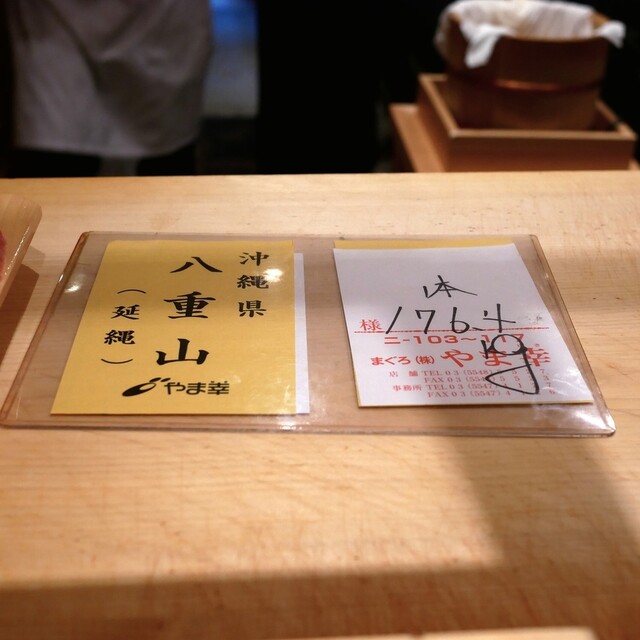 沖縄県
八重山
(延縄)
やま幸
本
様 176.4
ニ-103~107
まぐろ(株) やま幸
店 舗 TEL 03 (5548)
FAX 03
事務所 TEL 03 (5547)
FAX 03 (5547) 4